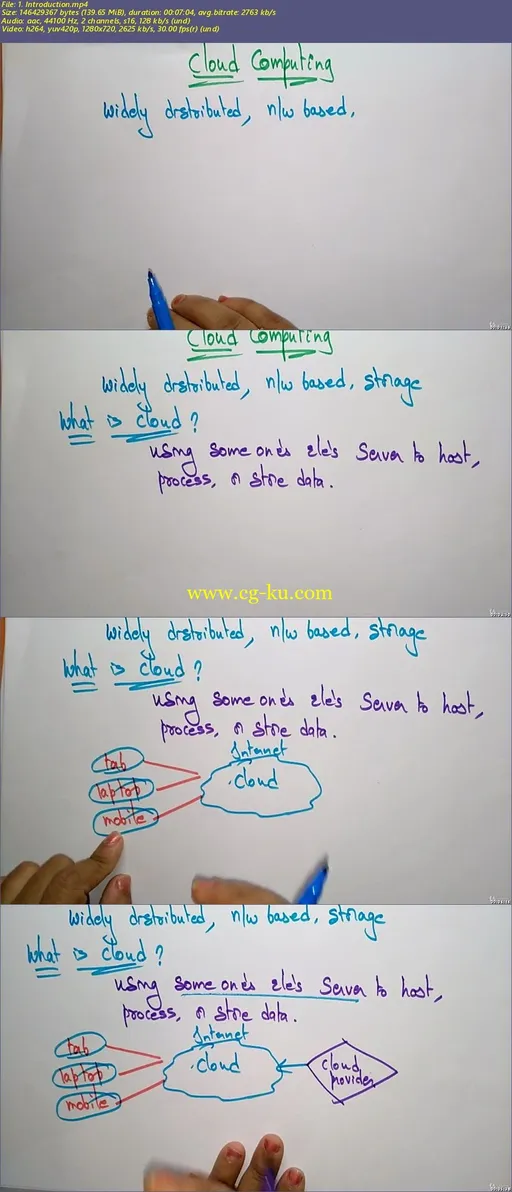 File: 1. Introduction.mp4
Size: 146429367 bytes (139.65 MiB), duration: 00:07:04, avg.bitrate: 2763 kb/s
Audio: aac, 44100 Hz, 2 channels, s16, 128 kb/s (und)
Video: h264, yuv420p, 1280x720, 2625 kb/s, 30.00 fps(r) (und)
Cloud Computing
widely drstributed, n/w based,
Cloud Computing
widely drstributed, n/w based, storage
What is cloud ?
using some one's ele's Server to host,
process, or store data.
www.cg-ku.com
widely drstributed, n/w based, storage
What is cloud ?
using some one's ele's Server to host,
process, or store data.
Internet
tab
cloud
laptop
mobile
widely drstributed, n/w based, storage
What is cloud ?
using some one's ele's Server to host,
process, or store data.
Internet
tab
cloud
cloud
provider
laptop
mobile